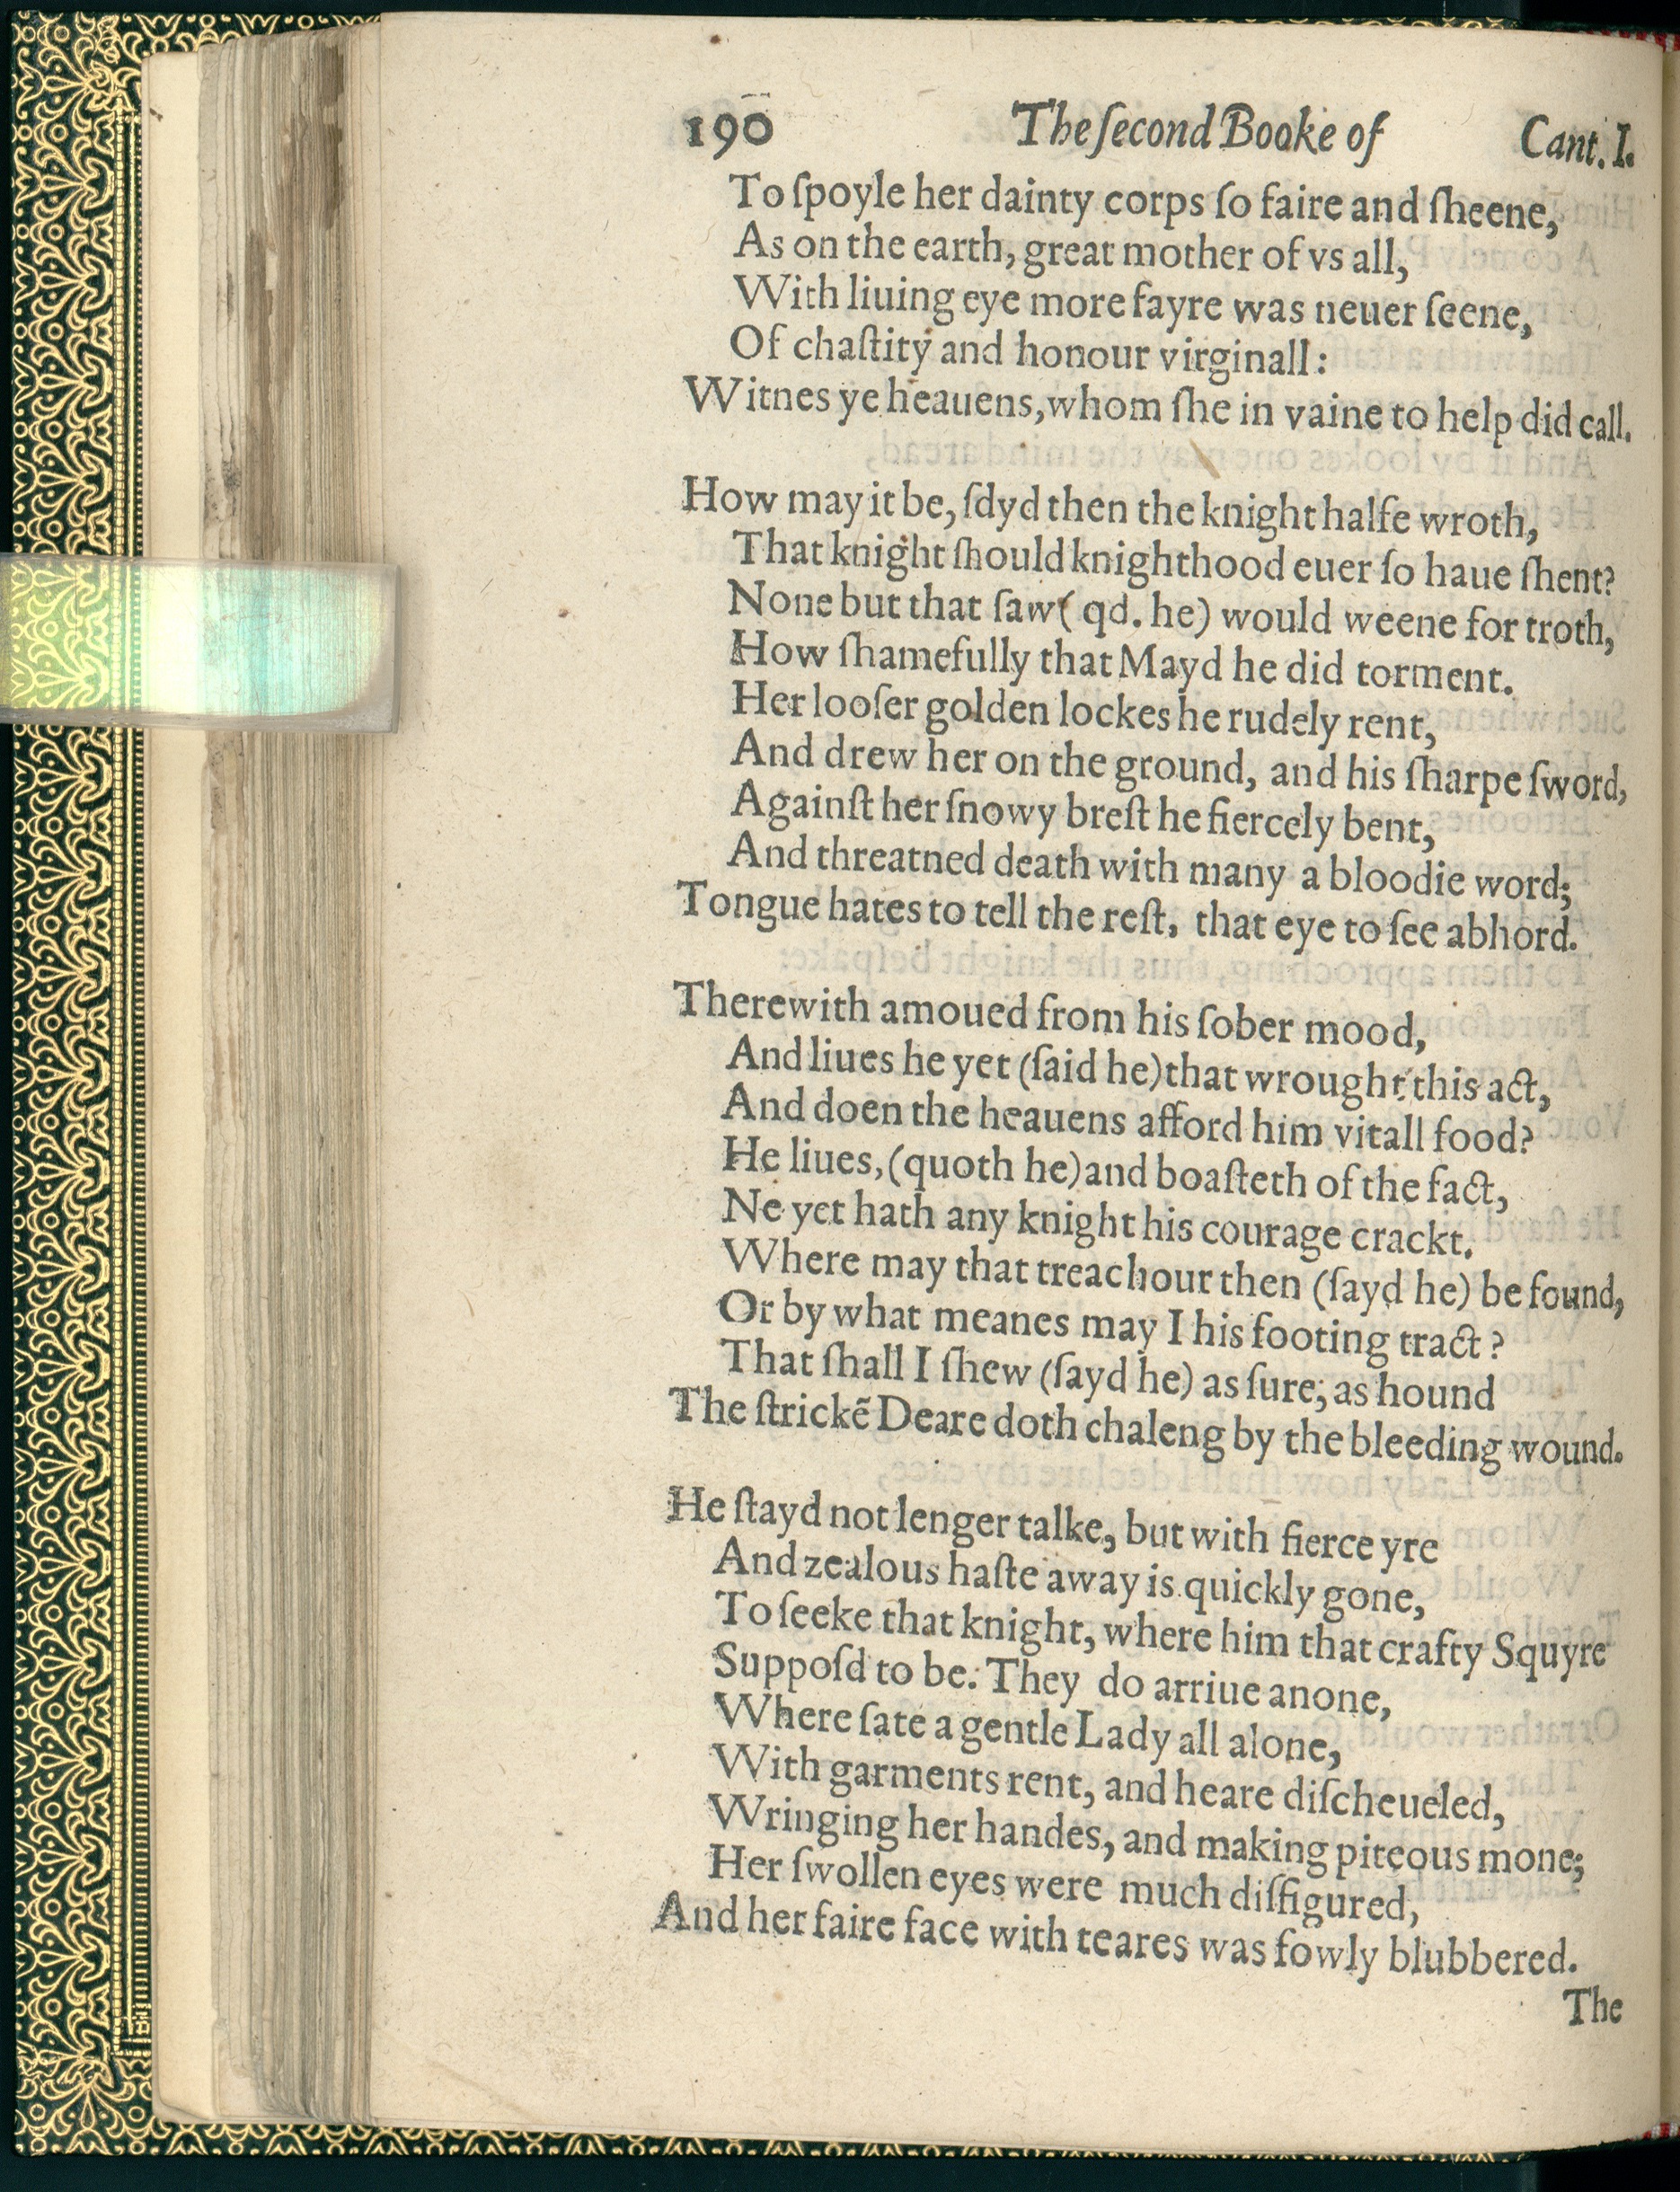 190 The ſecond Booke of Cant. I.
To ſpoyle her dainty corps ſo faire and ſheene,
As on the earth, great mother of vs all,
With liuing eye more fayre was neuer ſeene,
Of chaſtity and honour virginall:
Witnes ye heauens, whom ſhe in vaine to help did call.
How may it be, ſdyd then the knight halfe wroth,
That knight ſhould knighthood euer ſo haue ſhent?
None but that ſaw (qd. he) would weene for troth,
How ſhamefully that Mayd he did torment.
Her looſer golden lockes he rudely rent,
And drew her on the ground, and his ſharpe ſword,
Againſt her ſnowy breſt he fiercely bent,
And threatned death with many a bloodie word;
Tongue hates to tell the reſt, that eye to ſee abhord.
Therewith amoued from his ſober mood,
And liues he yet (ſaid he) that wrought this act,
And doen the heauens afford him vitall food?
He liues, (quoth he) and boaſteth of the fact,
Ne yet hath any knight his courage crackt.
Where may that treachour then (ſayd he) be found,
Or by what meanes may I his footing tract?
That ſhall I ſhew (ſayd he) as ſure, as hound
The ſtrickẽ Deare doth chaleng by the bleeding wound.
He ſtayd not lenger talke, but with fierce yre
And zealous haſte away is quickly gone,
To ſeeke that knight, where him that crafty Squyre
Suppoſd to be. They do arriue anone,
Where ſate a gentle Lady all alone,
With garments rent, and heare diſcheueled,
Wringing her handes, and making piteous mone;
Her ſwollen eyes were much diſfigured,
And her faire face with teares was fowly blubbered.
The